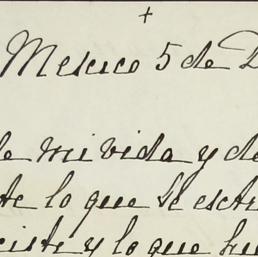 +
Mexico 5 de D
de mi vida y de
te lo que se
ciste y lo que